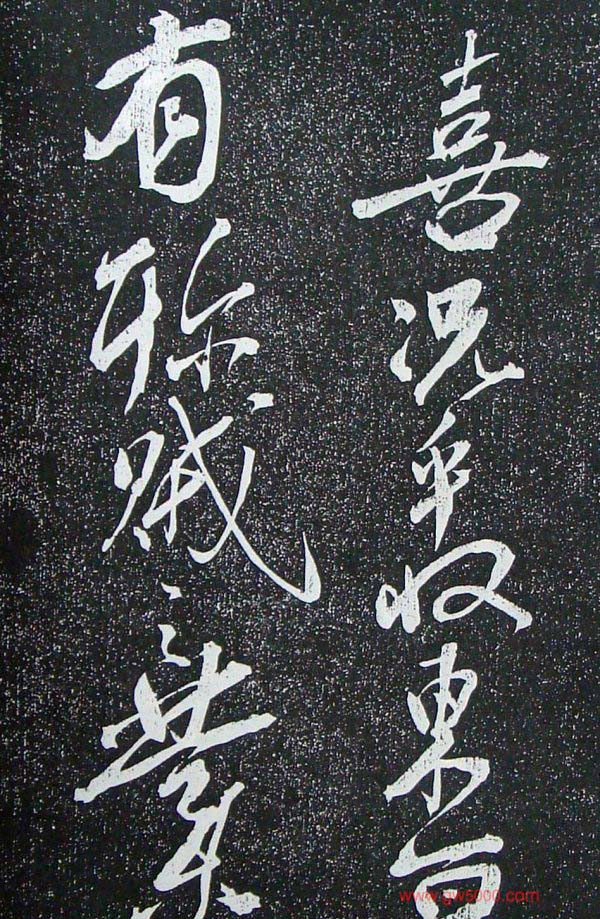 喜況平收東
有殄賊之業
www.gw5000.com